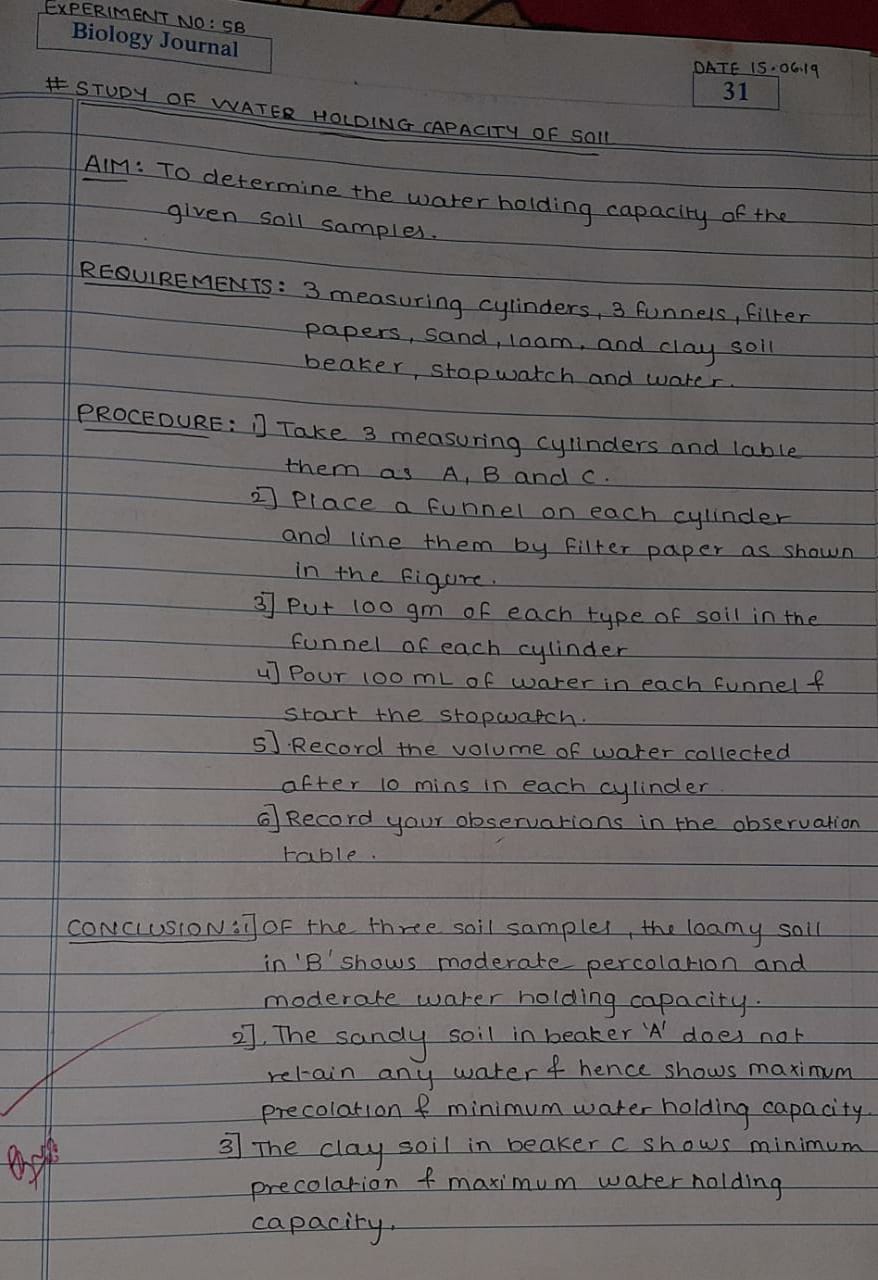 EXPERIMENT NO: 5B
Biology Journal
DATE 15.06.19
31
# STUDY OF WATER HOLDING CAPACITY OF SOIL
AIM: To determine the water holding capacity of the
given soil samples.
REQUIREMENTS: 3 measuring cylinders, 3 funnels, filter
papers, sand, loam, and clay soil
beaker, stopwatch and water.
PROCEDURE: 1] Take 3 measuring cylinders and lable
them as A, B and C.
2] Place a funnel on each cylinder
and line them by filter paper as shown
in the figure.
3] Put 100 gm of each type of soil in the
funnel of each cylinder
4] Pour 100 mL of water in each funnel &
start the stopwatch.
5] Record the volume of water collected
after 10 mins in each cylinder.
6] Record your observations in the observation
table.
CONCLUSION: 1] Of the three soil samples, the loamy soil
in 'B' shows moderate percolation and
moderate water holding capacity.
2]. The sandy soil in beaker 'A' does not
retain any water & hence shows maximum
precolation & minimum water holding capacity.
3] The clay soil in beaker C shows minimum
precolation & maximum water holding
capacity.